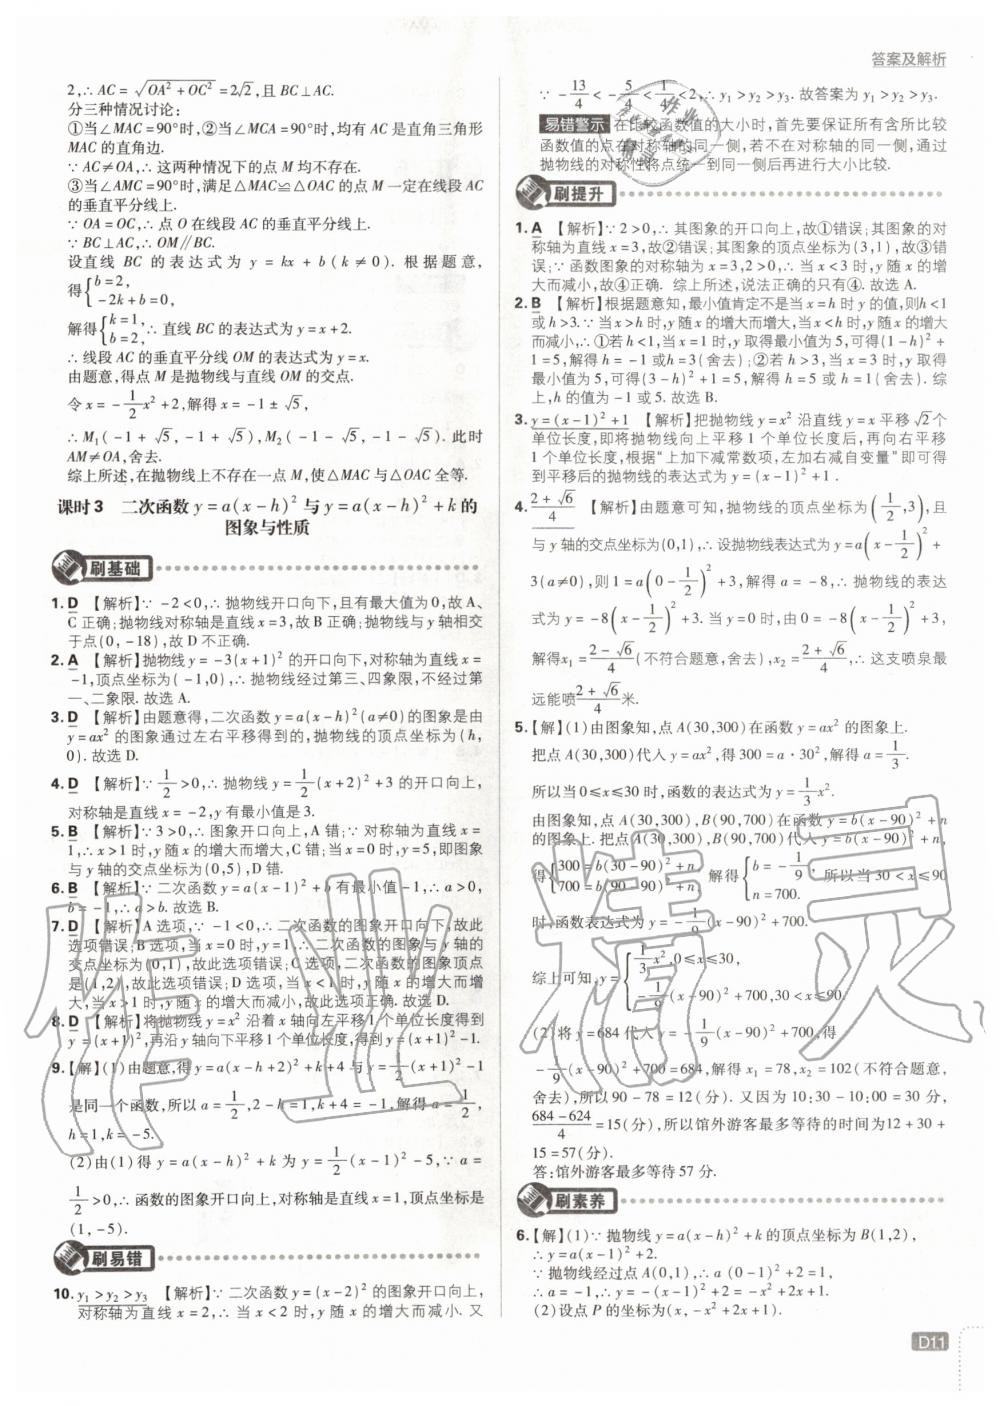 答案及解析
2,∴AC=√(OA²+OC²)=2√2,且BC⊥AC.
分三种情况讨论:
①当∠MAC=90°时,②当∠MCA=90°时,均有AC是直角三角形
MAC的直角边.
∵AC≠OA,∴这两种情况下的点M均不存在.
③当∠AMC=90°时,满足△MAC≌△OAC的点M一定在线段AC
的垂直平分线上.
∵OA=OC,∴点O在线段AC的垂直平分线上.
∵BC⊥AC,∴OM∥BC.
设直线BC的表达式为y=kx+b(k≠0).根据题意,
得{b=2, -2k+b=0,
解得{k=1, b=2,∴直线BC的表达式为y=x+2.
∴线段AC的垂直平分线OM的表达式为y=x.
由题意,得点M是抛物线与直线OM的交点.
令x=-1/2x²+2,解得x=-1±√5,
∴M₁(-1+√5,-1+√5),M₂(-1-√5,-1-√5).此时
AM≠OA,舍去.
综上所述,在抛物线上不存在一点M,使△MAC与△OAC全等.
课时3 二次函数y=a(x-h)²与y=a(x-h)²+k的
图象与性质
刷基础
1.D 【解析】∵-2<0,∴抛物线开口向下,且有最大值为0,故A、
C正确;抛物线对称轴为直线x=3,故B正确;抛物线与y轴相交
于点(0,-18),故D不正确.
2.A 【解析】抛物线y=-3(x+1)²的开口向下,对称轴为直线x=
-1,顶点坐标为(-1,0),∴抛物线经过第三、四象限,不经过第
一、二象限.故选A.
3.D 【解析】由题意得,二次函数y=a(x-h)²(a≠0)的图象是由
y=ax²的图象通过左右平移得到的,抛物线的顶点坐标为(h,
0).故选D.
4.D 【解析】∵1/2>0,∴抛物线y=1/2(x+2)²+3的开口向上,
对称轴是直线x=-2,y有最小值是3.
5.B 【解析】∵3>0,∴图象开口向上,A错;∵对称轴为直线x=
1,∴x>1时,y随x的增大而增大,C错;当x=0时,y=5,即图象
与y轴的交点坐标为(0,5),D错.
6.B 【解析】∵二次函数y=a(x-1)²+b有最小值-1,∴a>0,
b=-1,∴a>b.故选B.
7.D 【解析】A选项,∵-1<0,∴二次函数的图象开口向下,故此
选项错误;B选项,当x=0时,y=1,∴二次函数的图象与y轴的
交点坐标为(0,1),故此选项错误;C选项,二次函数的图象顶点
是(1,2),故此选项错误;D选项,当x<1时,y随x的增大而增
大,当x>1时,y随x的增大而减小,故此选项正确.故选D.
8.D 【解析】将抛物线y=x²沿着x轴向左平移1个单位长度得到
y=(x+1)²,再沿y轴向下平移1个单位长度,得到y=(x+1)²-1.
9.【解】(1)由题意,得y=a(x-h+2)²+k+4与y=1/2(x+1)²-1
是同一个函数,所以a=1/2,2-h=1,k+4=-1,解得a=1/2,
h=1,k=-5.
(2)由(1)得y=a(x-h)²+k为y=1/2(x-1)²-5,∵a=
1/2>0,∴函数的图象开口向上,对称轴是直线x=1,顶点坐标是
(1,-5).
刷易错
10.y₁>y₂>y₃ 【解析】∵二次函数y=(x-2)²的图象开口向上,
对称轴为直线x=2,∴当x<2时,y随x的增大而减小.又
∵-13/4<-5/4<1/4<2,∴y₁>y₂>y₃.故答案为y₁>y₂>y₃.
易错警示 在比较函数值的大小时,首先要保证所有含所比较
函数值的点在对称轴的同一侧,若不在对称轴的同一侧,通过
抛物线的对称性将点统一到同一侧后再进行大小比较.
刷提升
1.A 【解析】∵2>0,∴其图象的开口向上,故①错误;其图象的对
称轴为直线x=3,故②错误;其图象的顶点坐标为(3,1),故③错
误;∵函数图象的对称轴为x=3,2>0,∴当x<3时,y随x的增
大而减小,故④正确.综上所述,说法正确的只有④.故选A.
2.B 【解析】根据题意知,最小值肯定不是当x=h时y的值,则h<1
或h>3.∵当x>h时,y随x的增大而增大,当x<h时,y随x的增大
而减小,∴①若h<1,当x=1时,y取得最小值为5,可得(1-h)²+
1=5,解得h=-1或h=3(舍去);②若h>3,当x=3时,y取得
最小值为5,可得(3-h)²+1=5,解得h=5或h=1(舍去).综
上,h的值为-1或5.故选B.
3.y=(x-1)²+1 【解析】把抛物线y=x²沿直线y=x平移√2个
单位长度,即将抛物线向上平移1个单位长度后,再向右平移
1个单位长度,根据“上加下减常数项,左加右减自变量”即可得
到平移后的抛物线的表达式为y=(x-1)²+1.
4.(2+√6)/4 【解析】由题意可知,抛物线的顶点坐标为(1/2,3),且
与y轴的交点坐标为(0,1),∴设抛物线表达式为y=a(x-1/2)²+
3(a≠0),则1=a(0-1/2)²+3,解得a=-8,∴抛物线的表达
式为y=-8(x-1/2)²+3.当y=0时,由0=-8(x-1/2)²+3,
解得x₁=(2-√6)/4(不符合题意,舍去),x₂=(2+√6)/4,∴这支喷泉最
远能喷(2+√6)/4米.
5.【解】(1)由图象知,点A(30,300)在函数y=ax²的图象上.
把点A(30,300)代入y=ax²,得300=a·30²,解得a=1/3.
所以当0≤x≤30时,函数的表达式为y=1/3x².
由图象知,点A(30,300),B(90,700)在函数y=b(x-90)²+n
的图象上.把点A(30,300),B(90,700)代入y=b(x-90)²+n,
得{300=b(30-90)²+n, 700=b(90-90)²+n, 解得{b=-1/9, n=700. 所以当30<x≤90
时,函数表达式为y=-1/9(x-90)²+700.
综上可知,y={1/3x²,0≤x≤30, -1/9(x-90)²+700,30<x≤90.
(2)将y=684代入y=-1/9(x-90)²+700,得
-1/9(x-90)²+700=684,解得x₁=78,x₂=102(不符合题意,
舍去),所以90-78=12(分).又因为10:30-10:00=30分,
(684-624)/4=15(分),所以馆外游客最多等待的时间为12+30+
15=57(分).
答:馆外游客最多等待57分.
刷素养
6.【解】(1)∵抛物线y=a(x-h)²+k的顶点坐标为B(1,2),
∴y=a(x-1)²+2.
∵抛物线经过点A(0,1),∴a(0-1)²+2=1,
∴a=-1,∴y=-(x-1)²+2=-x²+2x+1.
(2)设点P的坐标为(x,-x²+2x+1),
D11
作业精灵